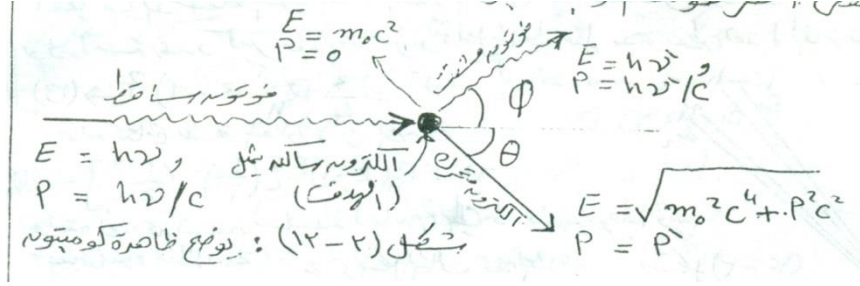 E = m₀c²
P = 0
فوتون ساقط
فوتون مشتت
E = hν'
P = hν'/c
φ
θ
E = hν و
P = hν/c
الكترون ساكن يمثل
(الهدف)
الكترون متحرك
E = √m₀²c⁴ + P²c²
P = P'
شكل (٢-١٢) : يوضح ظاهرة كومبتون